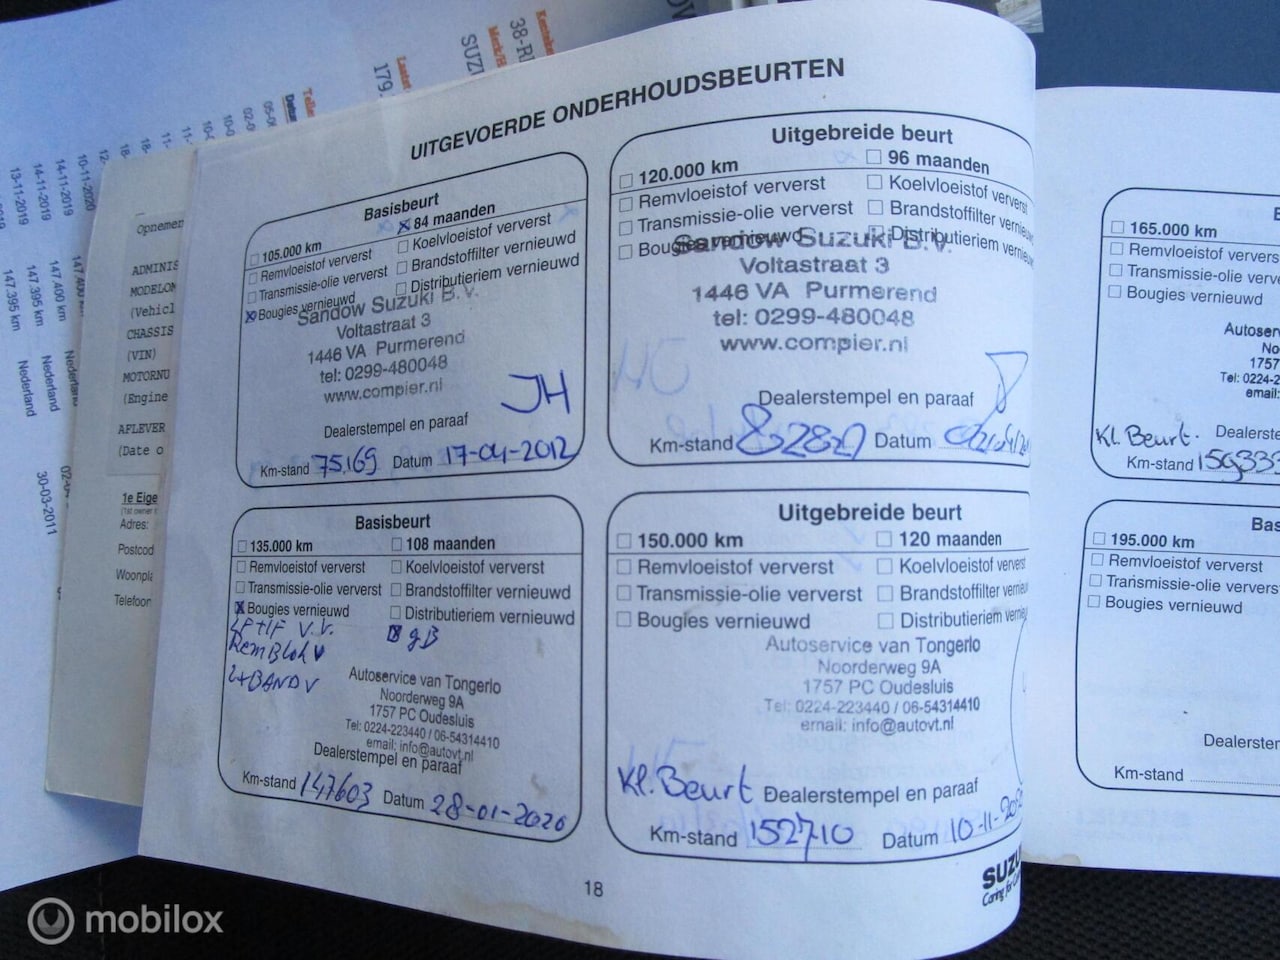 UITGEVOERDE ONDERHOUDSBEURTEN
Basisbeurt
105.000 km
84 maanden
Remvloeistof ververst
Koelvloeistof ververst
Transmissie-olie ververst
Brandstoffilter vernieuwd
Bougies vernieuwd
Distributieriem vernieuwd
Sandow Suzuki B.V.
Voltastraat 3
1446 VA Purmerend
tel: 0299-480048
www.compier.nl
JH
Dealerstempel en paraaf
Km-stand 75.169 Datum 17-04-2012
Uitgebreide beurt
120.000 km
96 maanden
Remvloeistof ververst
Koelvloeistof ververst
Transmissie-olie ververst
Brandstoffilter
Distributieriem
Sandow Suzuki B.V.
Voltastraat 3
1446 VA Purmerend
tel: 0299-480048
www.compier.nl
Dealerstempel en paraaf
Km-stand Datum
Basisbeurt
135.000 km
108 maanden
Remvloeistof ververst
Koelvloeistof ververst
Transmissie-olie ververst
Brandstoffilter vernieuwd
Bougies vernieuwd
Distributieriem vernieuwd
Autoservice van Tongerlo
Noorderweg 9A
1757 PC Oudesluis
Tel: 0224-223440 / 06-54314410
email: info@autovt.nl
Dealerstempel en paraaf
Km-stand 147603 Datum 28-01-2020
Uitgebreide beurt
150.000 km
120 maanden
Remvloeistof ververst
Koelvloeistof ververst
Transmissie-olie ververst
Brandstoffilter
Bougies vernieuwd
Distributieriem
Autoservice van Tongerlo
Noorderweg 9A
1757 PC Oudesluis
Tel: 0224-223440 / 06-54314410
email: info@autovt.nl
Kl. Beurt Dealerstempel en paraaf
Km-stand 152710 Datum 10-11-
18
165.000 km
Remvloeistof ververst
Transmissie-olie ververst
Bougies vernieuwd
1757
Tel: 0224-2
email:
Kl. Beurt.
Km-stand
195.000 km
Remvloeistof ververst
Transmissie-olie ververst
Bougies vernieuwd
Km-stand
CHASSIS
(VIN)
(Engine
(Date o
Adres:
10-11-2020
14-11-2019
14-11-2019
13-11-2019
147.400 km
147.395 km
147.395 km
Nederland
Nederland
Nederland
30-03-2011
mobilox